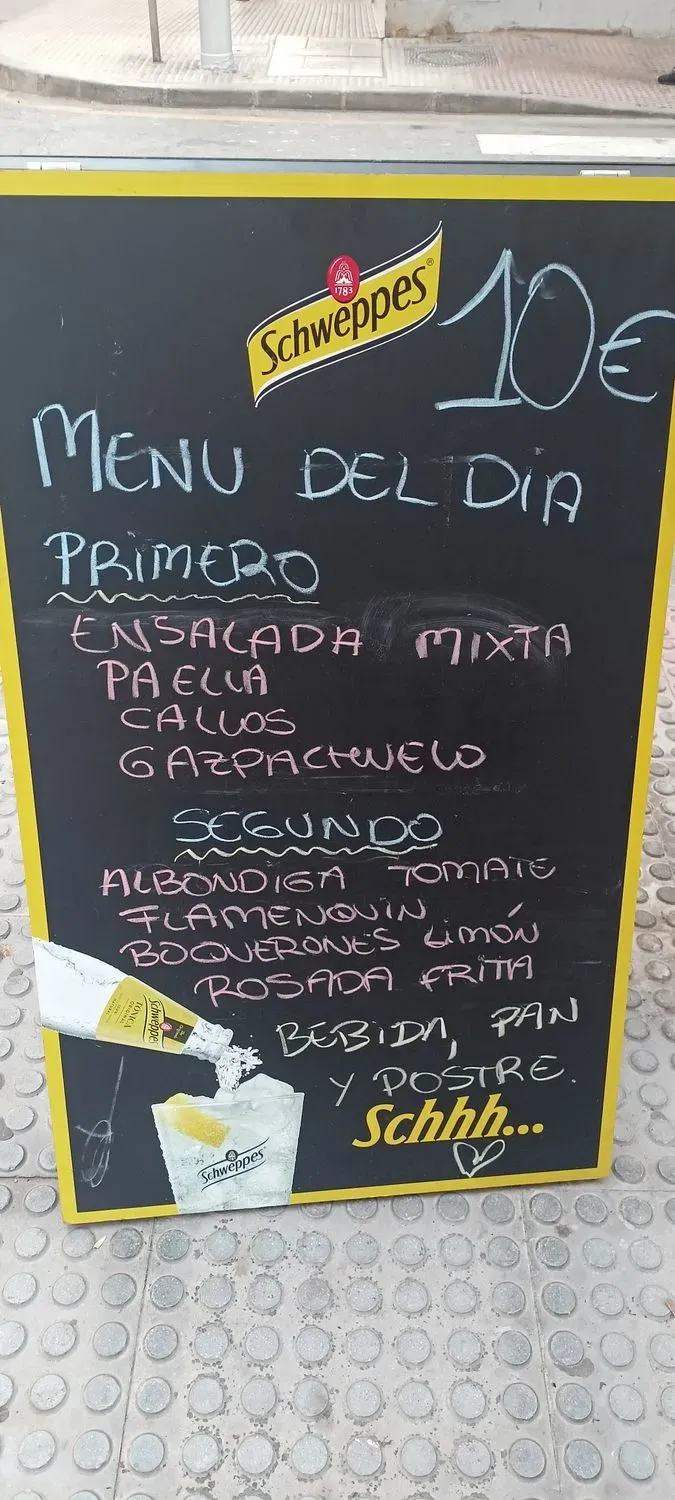 1783
Schweppes®
10€
MENU DEL DIA
PRIMERO
ENSALADA MIXTA
PAELLA
CALLOS
GAZPACHUELO
SEGUNDO
ALBONDIGA TOMATE
FLAMENQUIN
BOQUERONES LIMÓN
ROSADA FRITA
BEBIDA, PAN
Y POSTRE.
Schhh...
Schweppes
TONICA
Schweppes